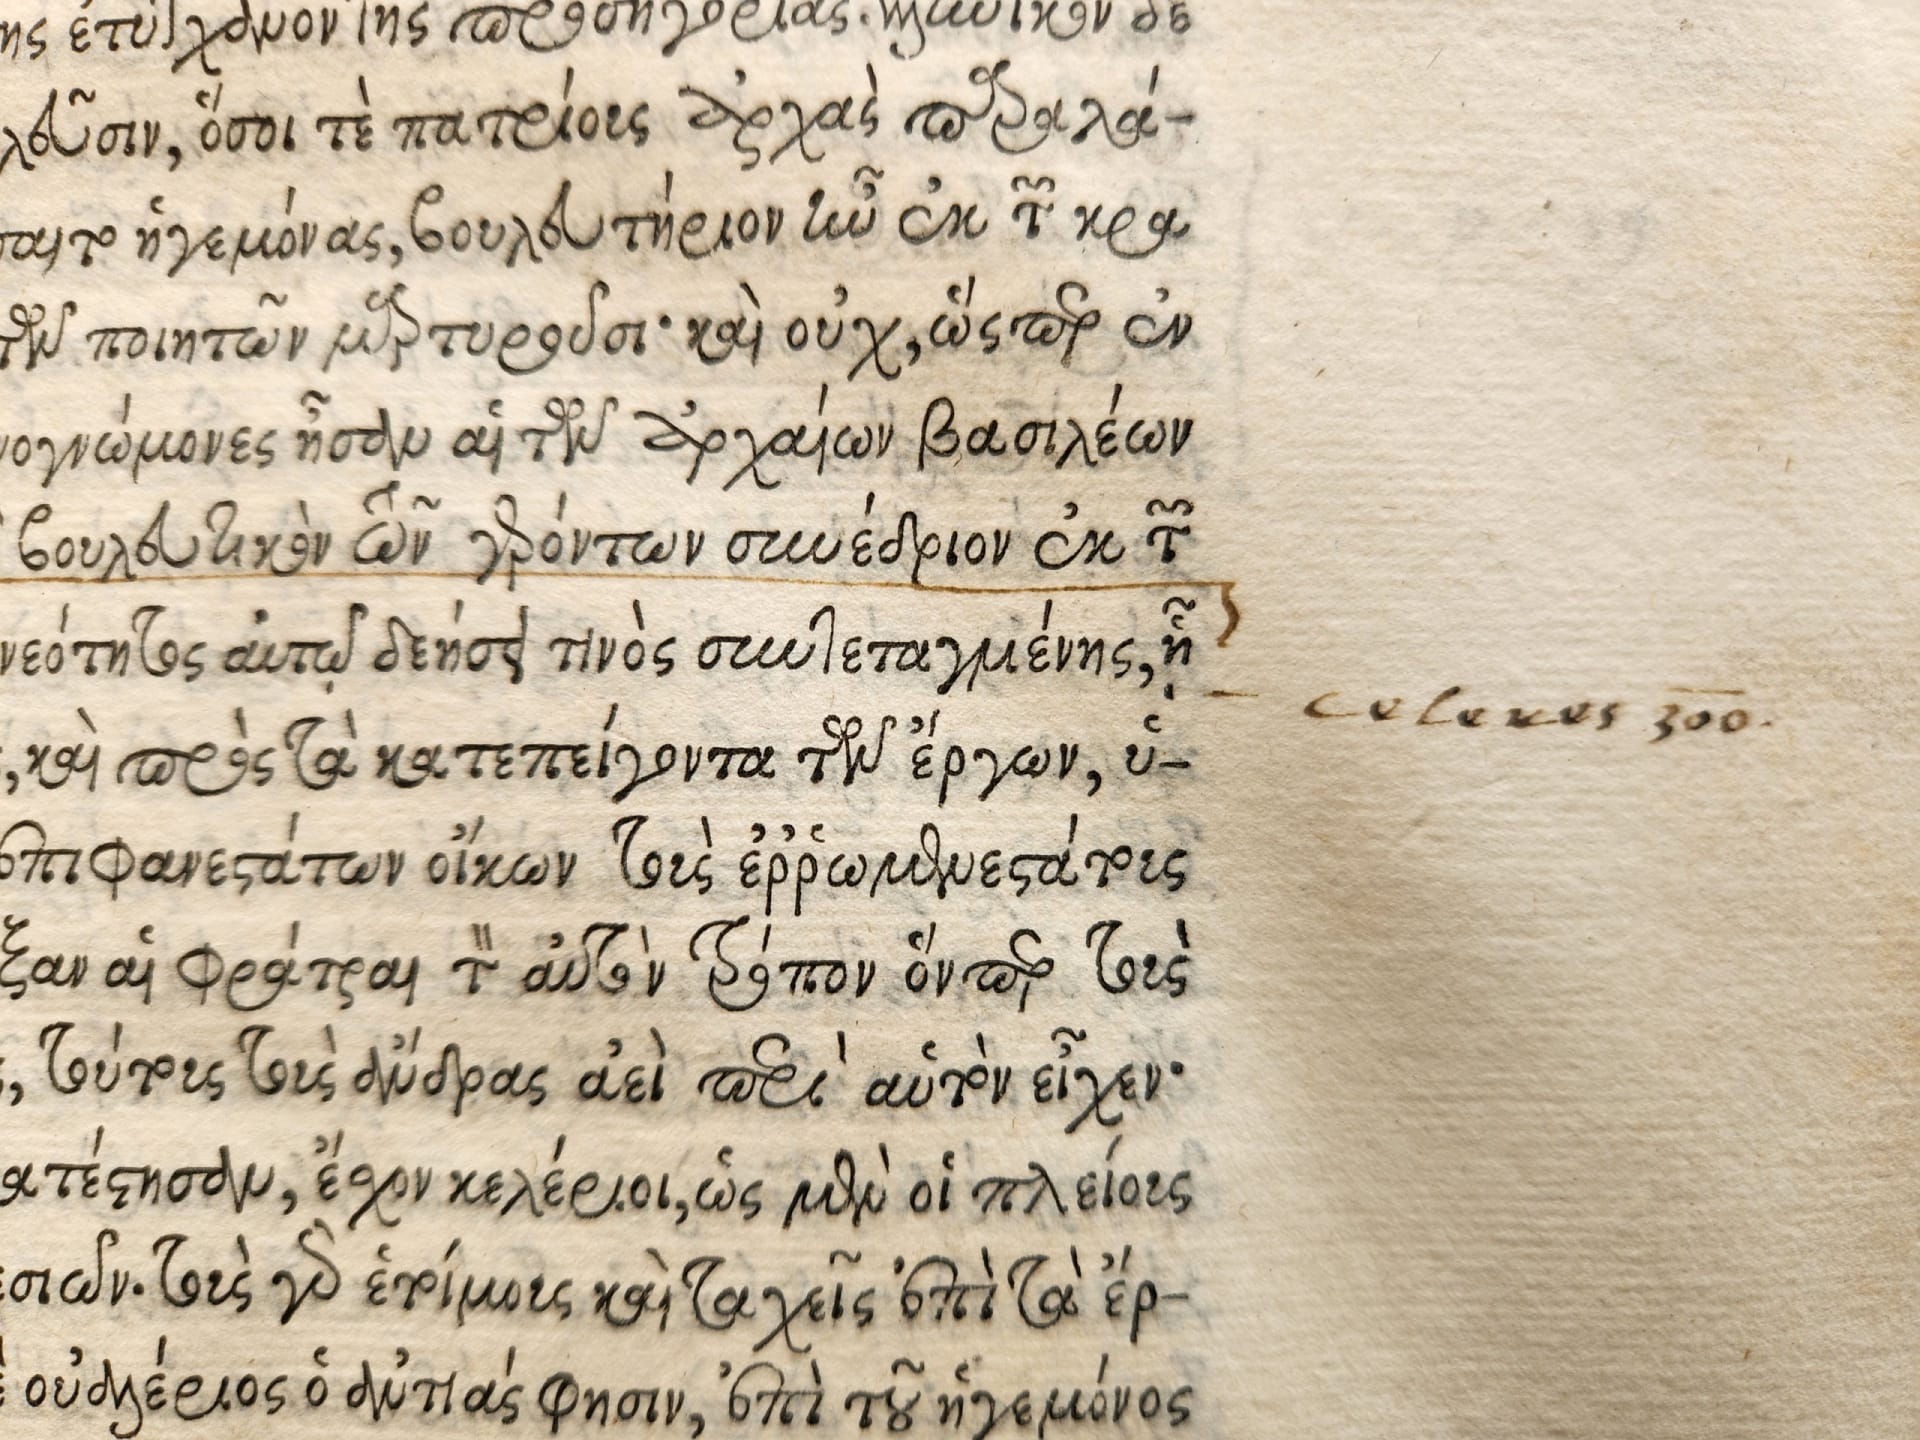 ης ἐτύγχανον τῆς προσηγορίας. Ἑλληνικὸν δὲ
λεῦσιν, ὅσοι τὲ πατρίους ἀρχὰς παραλά-
σαιντο ἡγεμόνας, βουλευτήριον ἦν ἐκ τῶν κρα
τῶν ποιητῶν μαρτυροῦσι· καὶ οὐχ, ὥσπερ ἐν
νογνώμονες ἦσαν αἱ τῶν ἀρχαίων βασιλέων
βουλευτικὸν τῶν γερόντων συνέδριον ἐκ τῶν
νεότητος αὐτῷ δεήσει τινὸς συντεταγμένης, ᾗ
celeres 300.
, καὶ πρὸς τὰ κατεπείγοντα τῶν ἔργων, ὑ-
ἐπιφανεστάτων οἴκων τοὺς ἐῤῥωμενεστάτους
ξαν αἱ φράτραι τὸν αὐτὸν τρόπον ὅνπερ τοὺς
, τούτους τοὺς ἄνδρας ἀεὶ περὶ αὑτὸν εἶχεν·
ατέστησαν, ἔσχον κελέριοι, ὡς μὲν οἱ πλείους
εσιῶν. τοὺς γὰρ ἑτοίμους καὶ ταχεῖς ἐπὶ τὰ ἔρ-
οὐαλέριος ὁ ἀντιάς φησιν, ἐπὶ τοῦ ἡγεμόνος